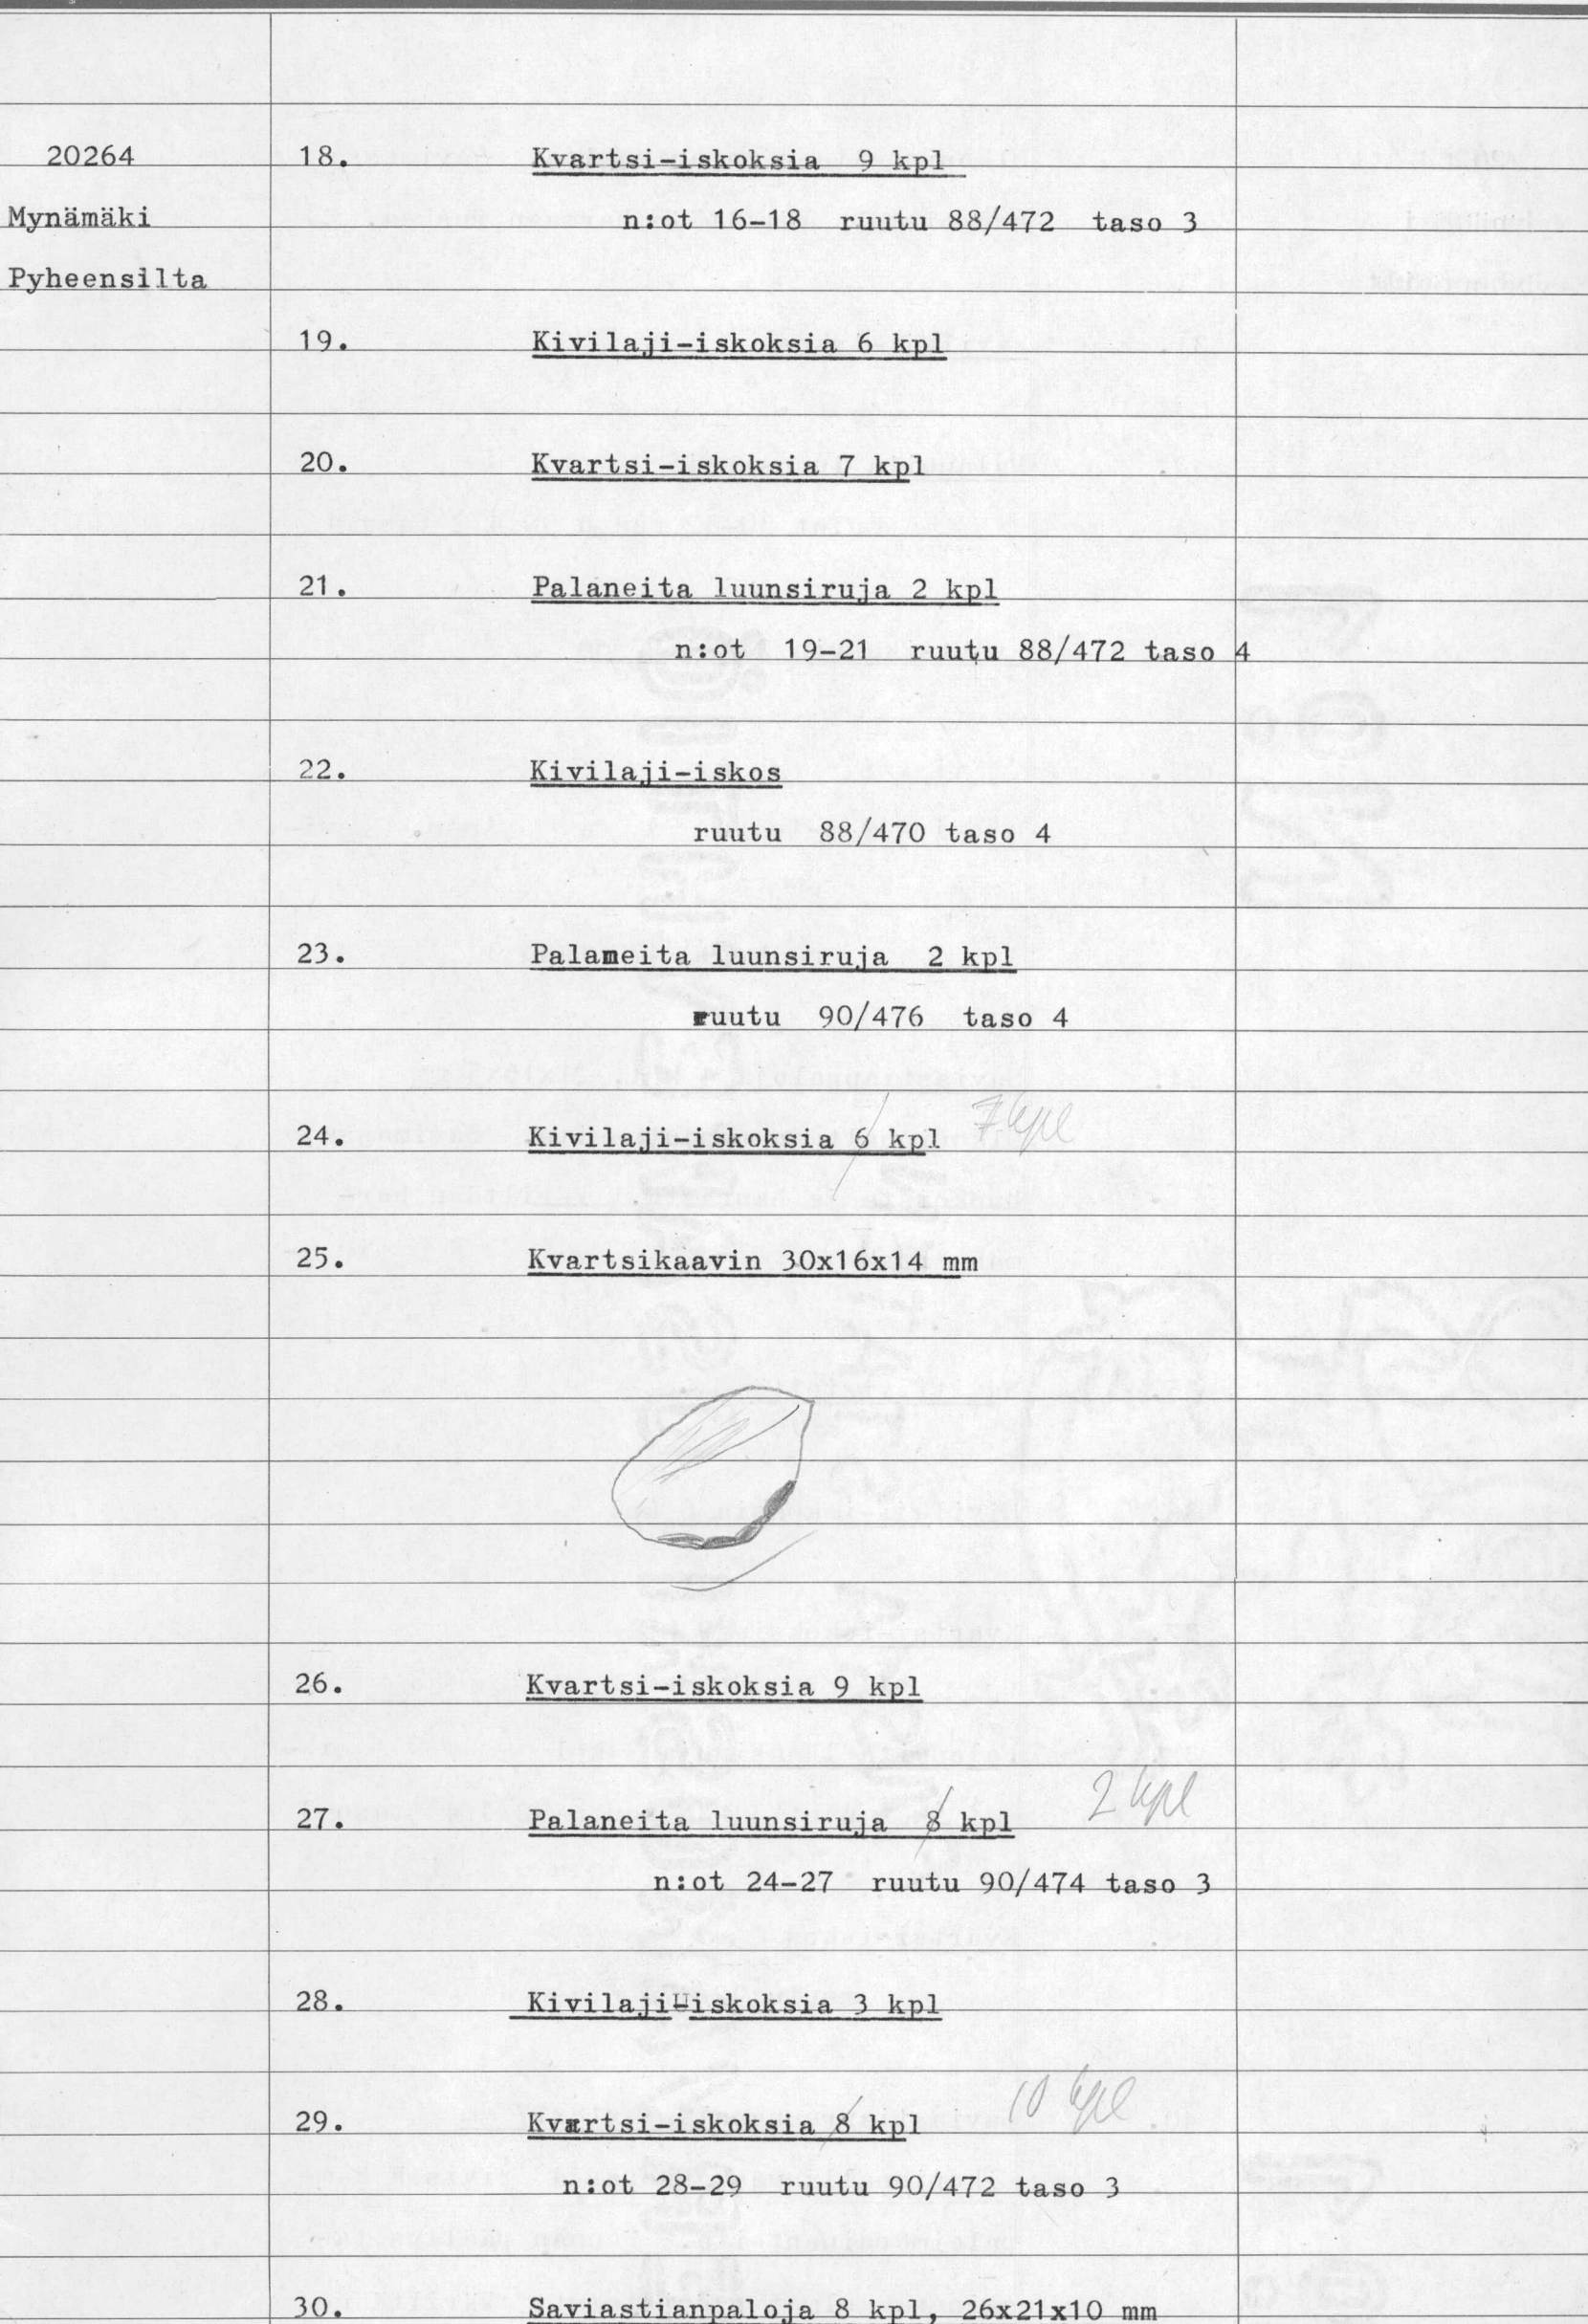 20264 18. Kvartsi-iskoksia 9 kpl
Mynämäki n:ot 16-18 ruutu 88/472 taso 3
Pyheensilta
19. Kivilaji-iskoksia 6 kpl
20. Kvartsi-iskoksia 7 kpl
21. Palaneita luunsiruja 2 kpl
n:ot 19-21 ruutu 88/472 taso 4
22. Kivilaji-iskos
ruutu 88/470 taso 4
23. Palameita luunsiruja 2 kpl
ruutu 90/476 taso 4
24. Kivilaji-iskoksia 6 kpl 7 kpl
25. Kvartsikaavin 30x16x14 mm
26. Kvartsi-iskoksia 9 kpl
27. Palaneita luunsiruja 8 kpl 2 kpl
n:ot 24-27 ruutu 90/474 taso 3
28. Kivilaji-iskoksia 3 kpl
29. Kvartsi-iskoksia 8 kpl 10 kpl
n:ot 28-29 ruutu 90/472 taso 3
30. Saviastianpaloja 8 kpl, 26x21x10 mm